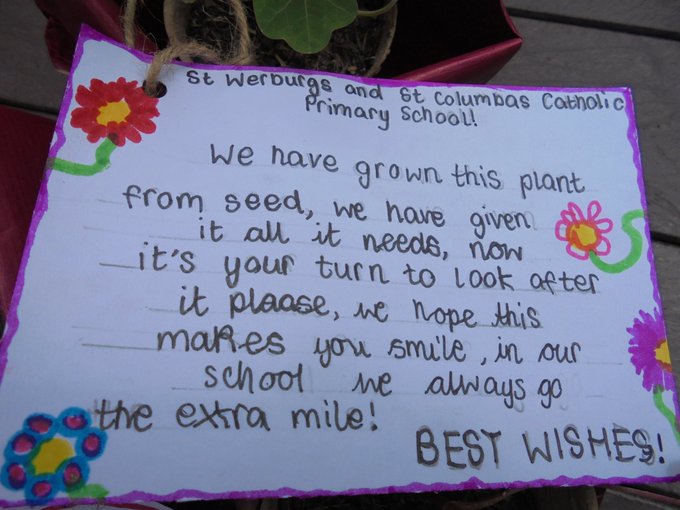 St Werburgs and St Columbas Catholic
Primary School!
We have grown this plant
from seed, we have given
it all it needs, now
it's your turn to look after
it please, we hope this
makes you smile, in our
school we always go
the extra mile!
BEST WISHES!